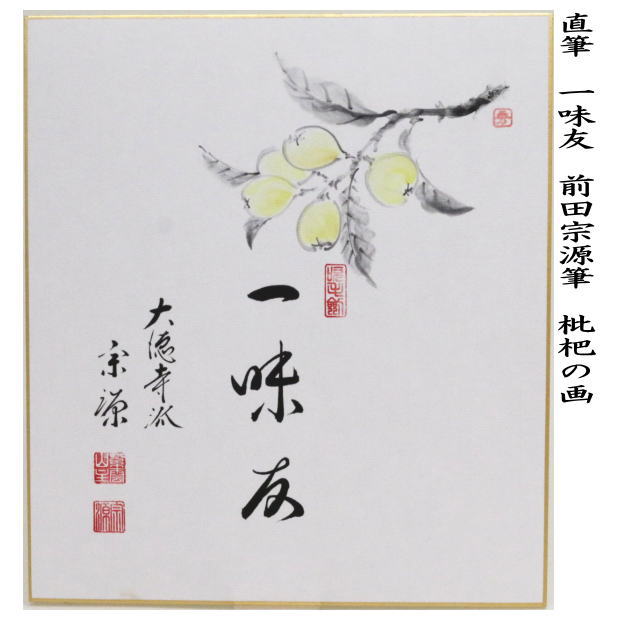 直筆　一味友　前田宗源筆　枇杷の画
一味友
大徳寺派
宗源